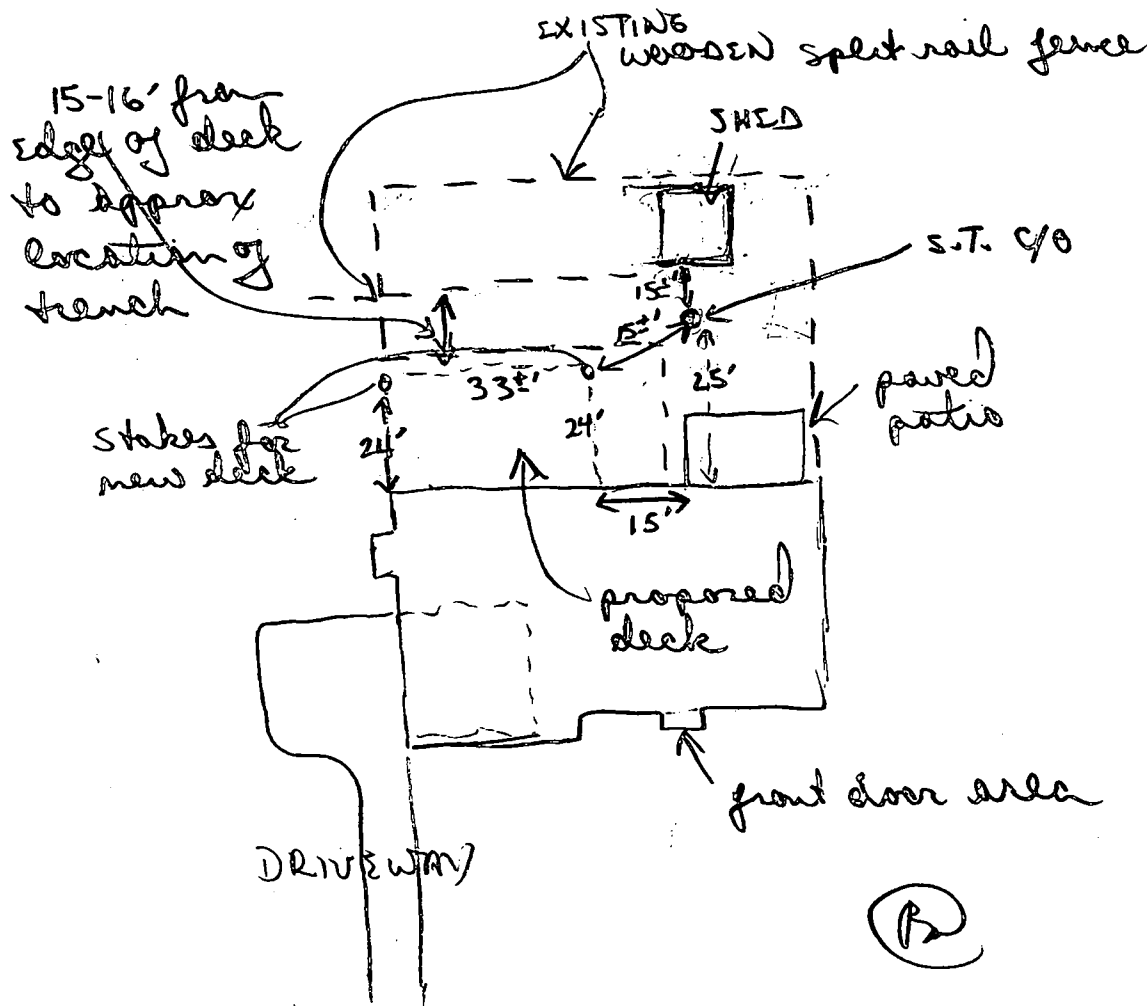 EXISTING
WOODEN split rail fence
15-16' from
edge of deck
to approx
location of
trench
SHED
S.T. C/O
15±'
15±'
33±'
25'
paved
patio
stakes for
new deck
24'
24'
15'
proposed
deck
front door area
DRIVEWAY